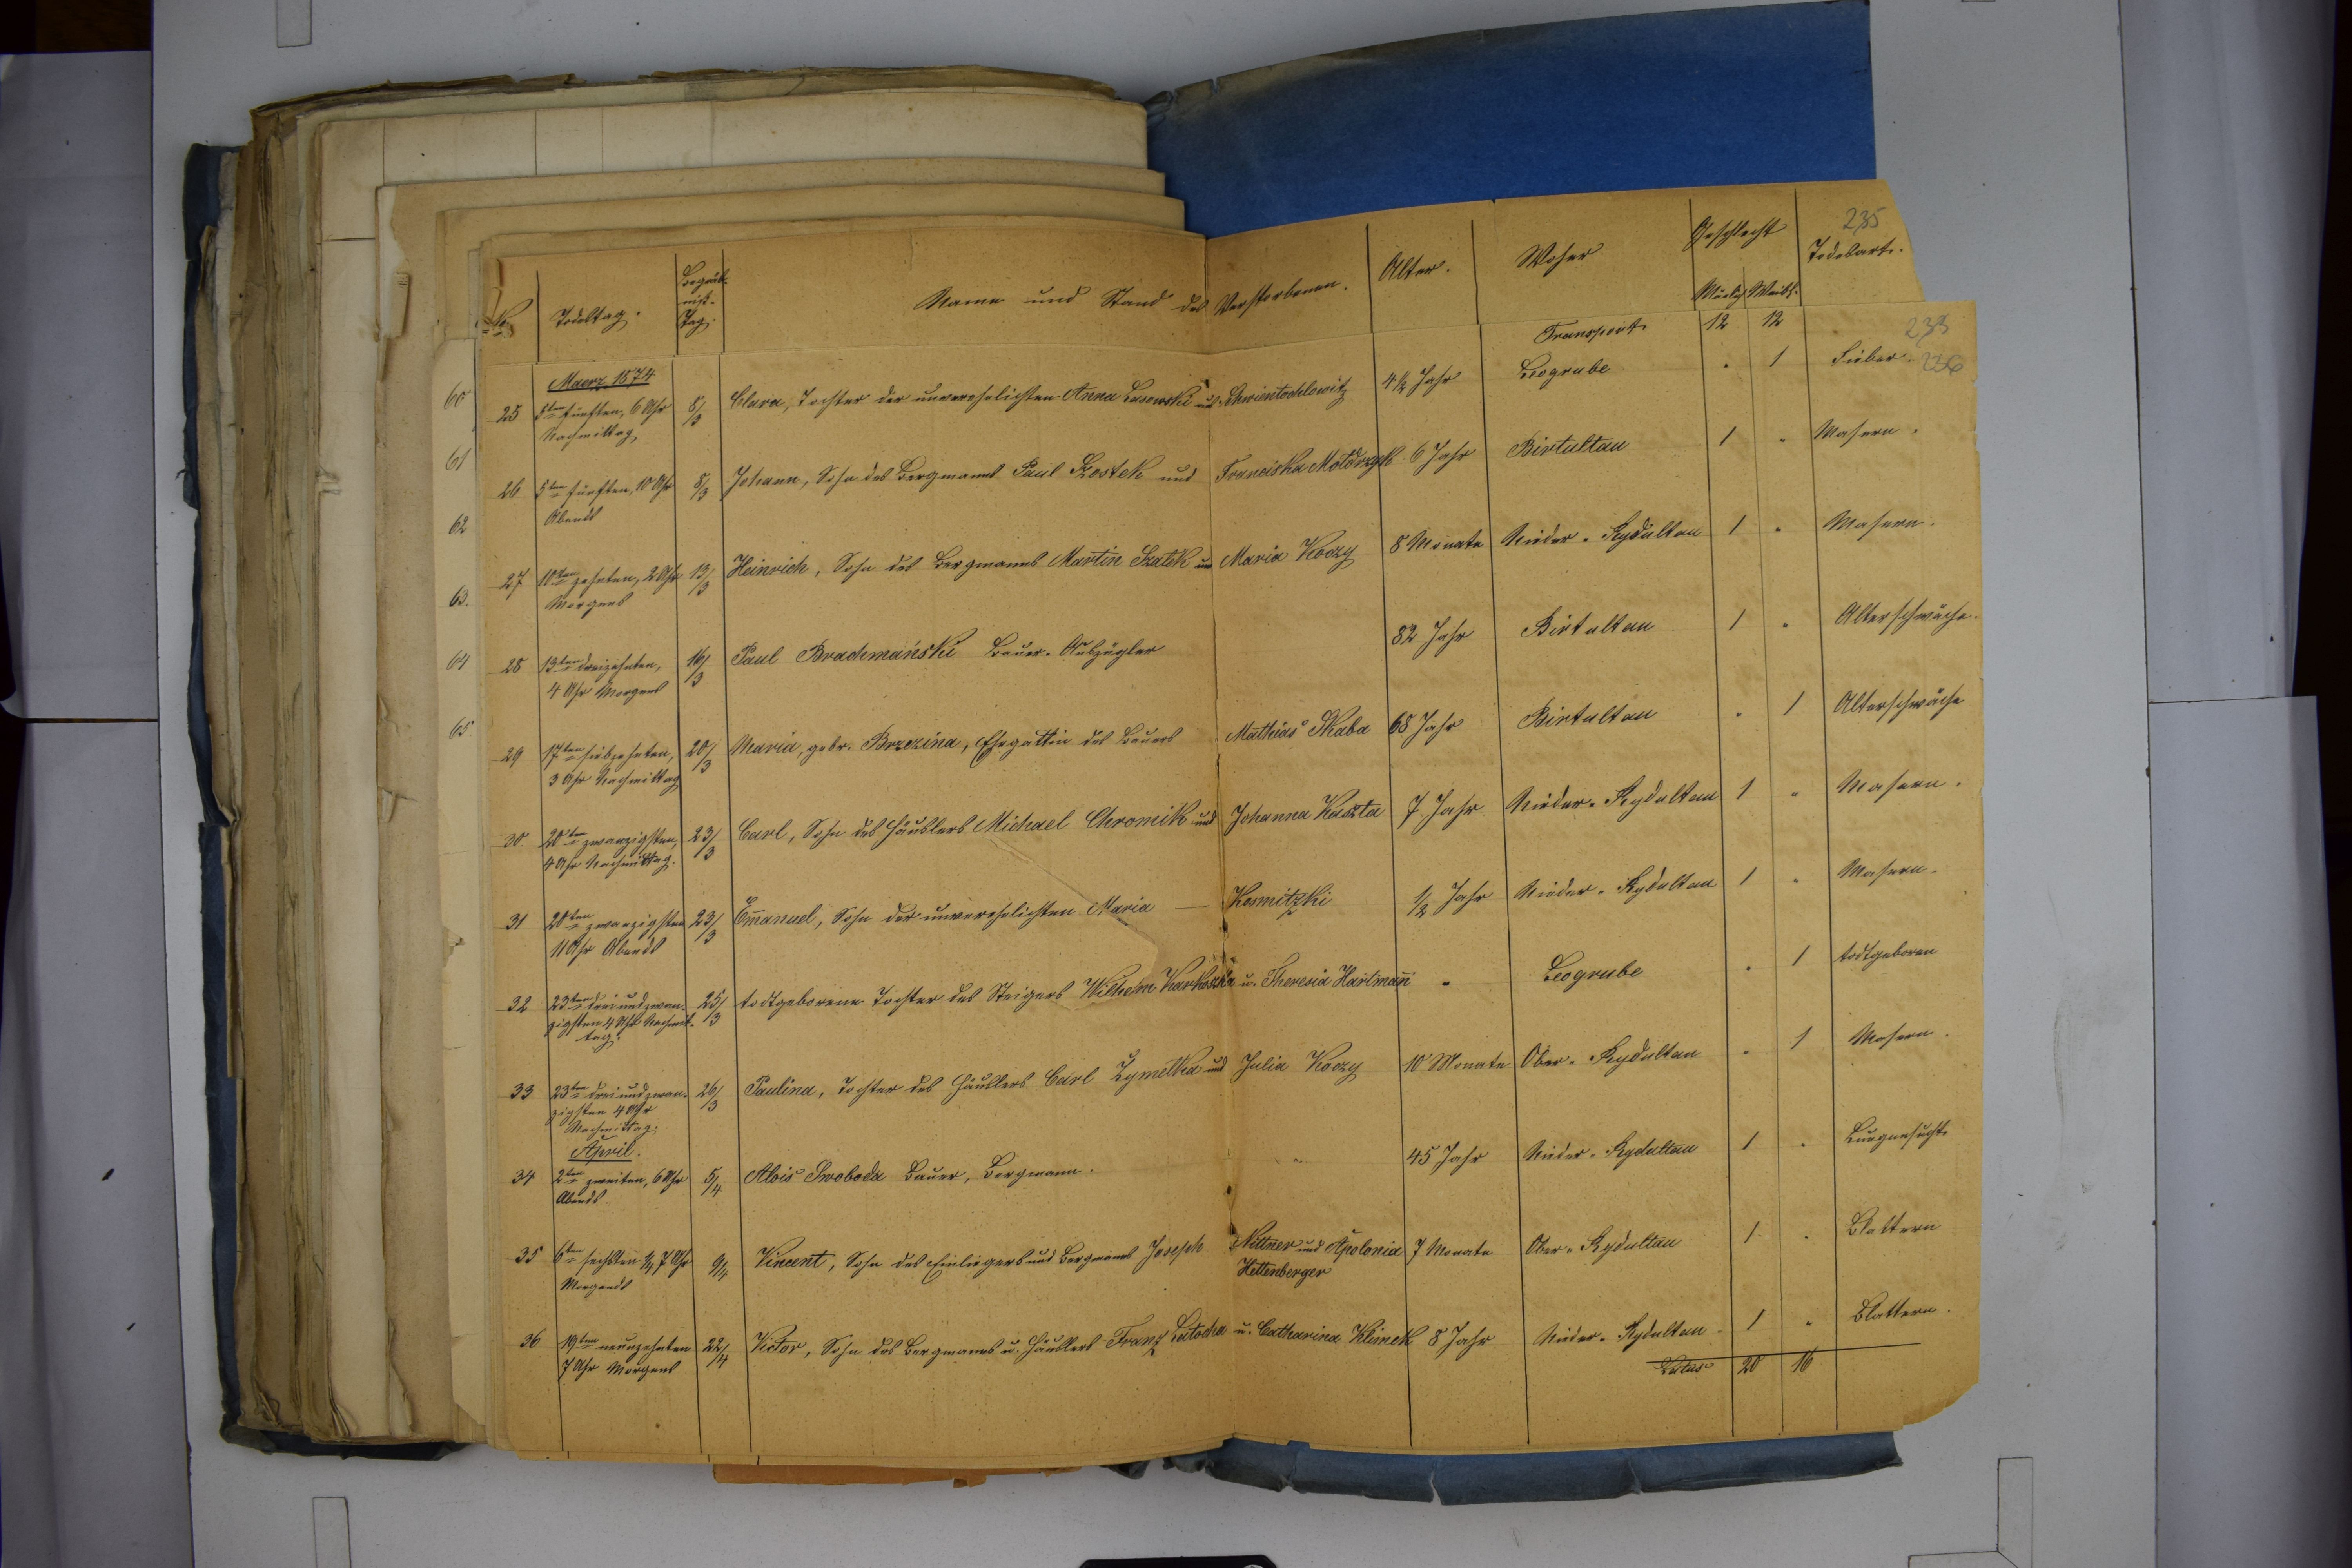 235
No Todestag. Begräb-
niß-
Tag. Name und Stand des Verstorbenen. Alter. Woher Geschlecht Todesart.
Männl. Weibl.
Transport 12 12
233
236
Maerz 1874
60
25 5ten fünften, 6 Uhr 8/3 Clara, Tochter der unverehelichten Anna Lasowski aus Schwientochlowitz 4 1/2 Jahr Leogrube . 1 Fieber.
Nachmittag
61
26 5ten fünften, 10 Uhr 8/3 Johann, Sohn des Bergmanns Paul Szostek und Franciska Motórzyk 6 Jahr Birtultau 1 . Masern.
Abends
62
27 10ten zehnten, 2 Uhr 13/3 Heinrich, Sohn des Bergmanns Martin Szatek und Maria Koczy 8 Monate Nieder-Rydultau 1 . Masern.
Morgens
63.
28 13ten dreizehnten, 16/3 Paul Brachmański Bauer-Auszügler 82 Jahr Birtultau 1 . Alterschwäche.
4 Uhr Morgens
64
29 17ten siebzehnten, 20/3 Maria, gebr. Brzezina, Ehegattin des Bauers Mathias Skaba 68 Jahr Birtultau . 1 Alterschwäche
3 Uhr Nachmittag
65
30 20ten zwanzigsten, 23/3 Carl, Sohn des Häuslers Michael Chromik und Johanna Kaszta 7 Jahr Nieder-Rydultau 1 . Masern.
4 Uhr Nachmittag.
31 20ten zwanzigsten 23/3 Emanuel, Sohn der unverehelichten Maria — Kosmitzki 1/2 Jahr Nieder-Rydultau 1 . Masern.
11 Uhr Abends
32 23ten dreiundzwan- 25/3 todtgeborene Tochter des Steigers Wilhelm Karkoszka u. Theresia Hartmann . Leogrube . 1 todtgeboren
zigsten 4 Uhr Nachmit-
tag.
33 23ten dreiundzwan- 26/3 Paulina, Tochter des Häuslers Carl Zymelka und Julia Koczy 10 Monate Ober-Rydultau . 1 Masern.
zigsten 4 Uhr
Nachmittag.
April.
34 2ten zweiten, 6 Uhr 5/4 Alois Swoboda Bauer, Bergmann. 45 Jahr Nieder-Rydultau 1 . Lungensucht
Abends.
35 6ten sechsten 1/4 7 Uhr 9/4 Vincent, Sohn des Einliegers und Bergmanns Joseph Nittner und Apolonia 7 Monate Ober-Rydultau 1 . Blattern
Morgends Hettenberger
36 19ten neunzehnten 22/4 Victor, Sohn des Bergmanns u. Häuslers Franz Latocha u. Catharina Klimek 8 Jahr Nieder-Rydultau 1 . Blattern.
7 Uhr Morgens
Latus 20 16